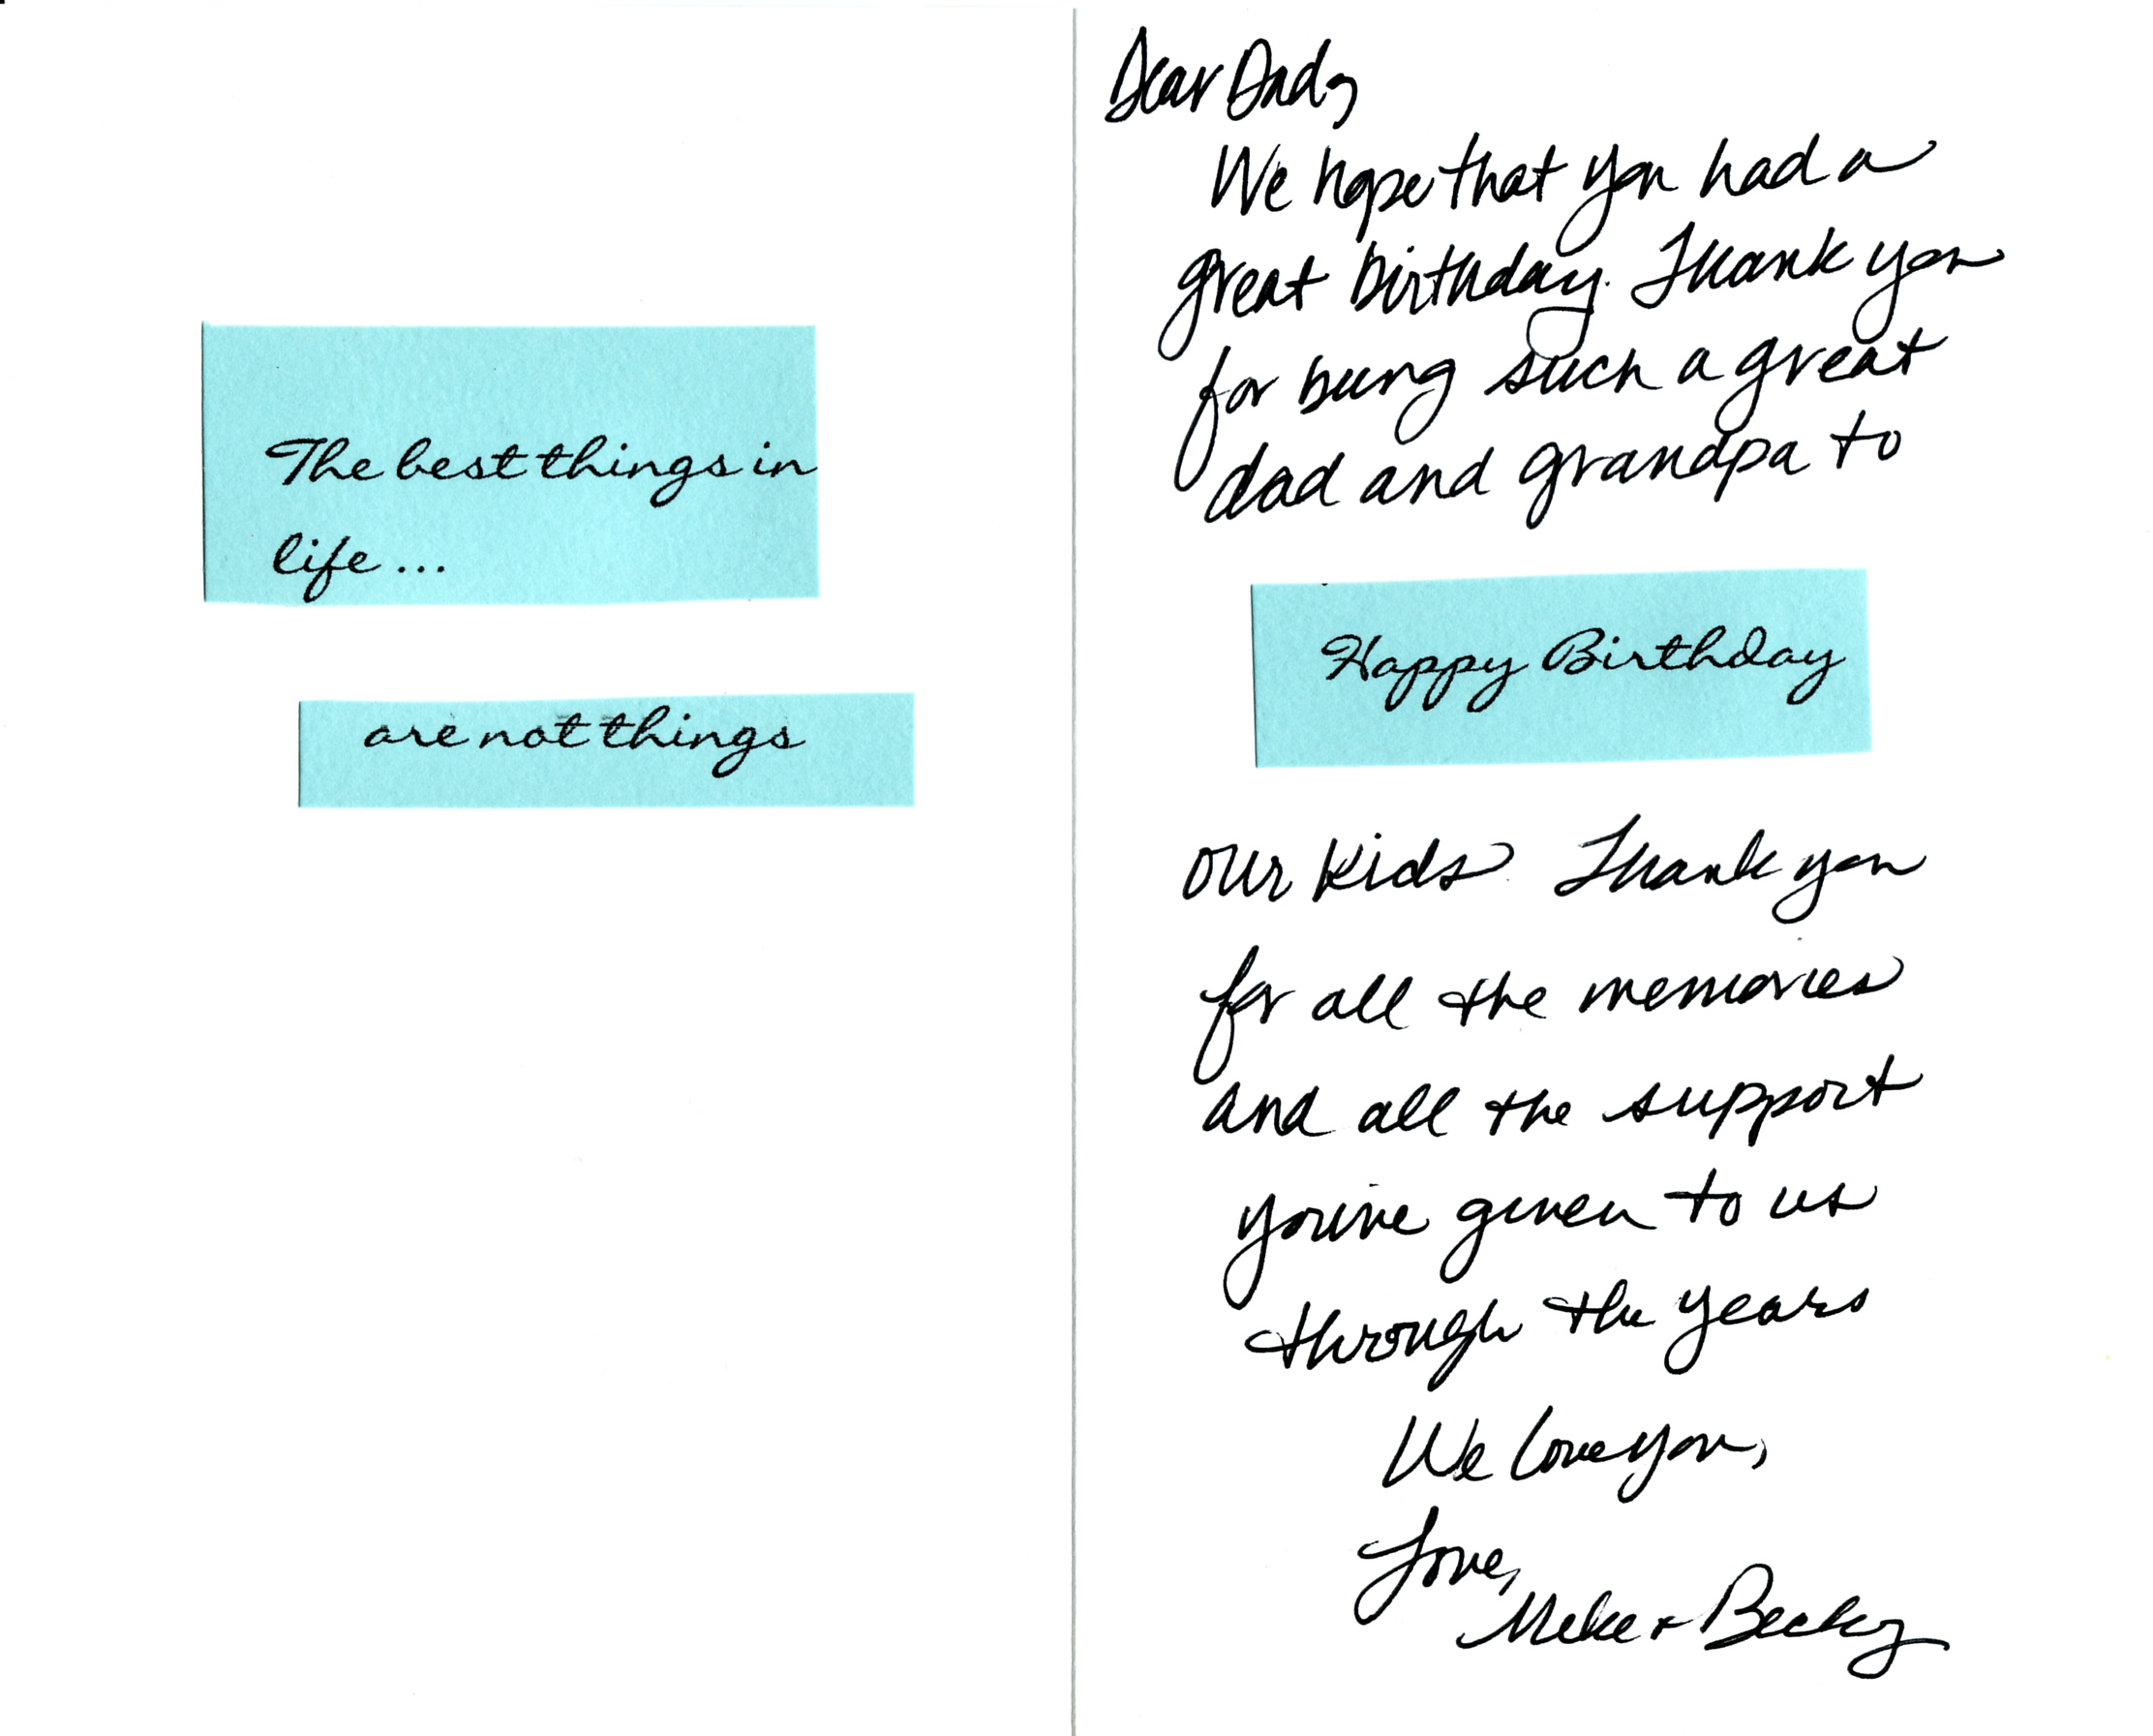 The best things in
life...
are not things
Dear Dad,
We hope that you had a
great birthday. Thank you
for being such a great
dad and grandpa to
Happy Birthday
our kids. Thank you
for all the memories
and all the support
you've given to us
through the years
We love you,
Love,
Mike + Becky